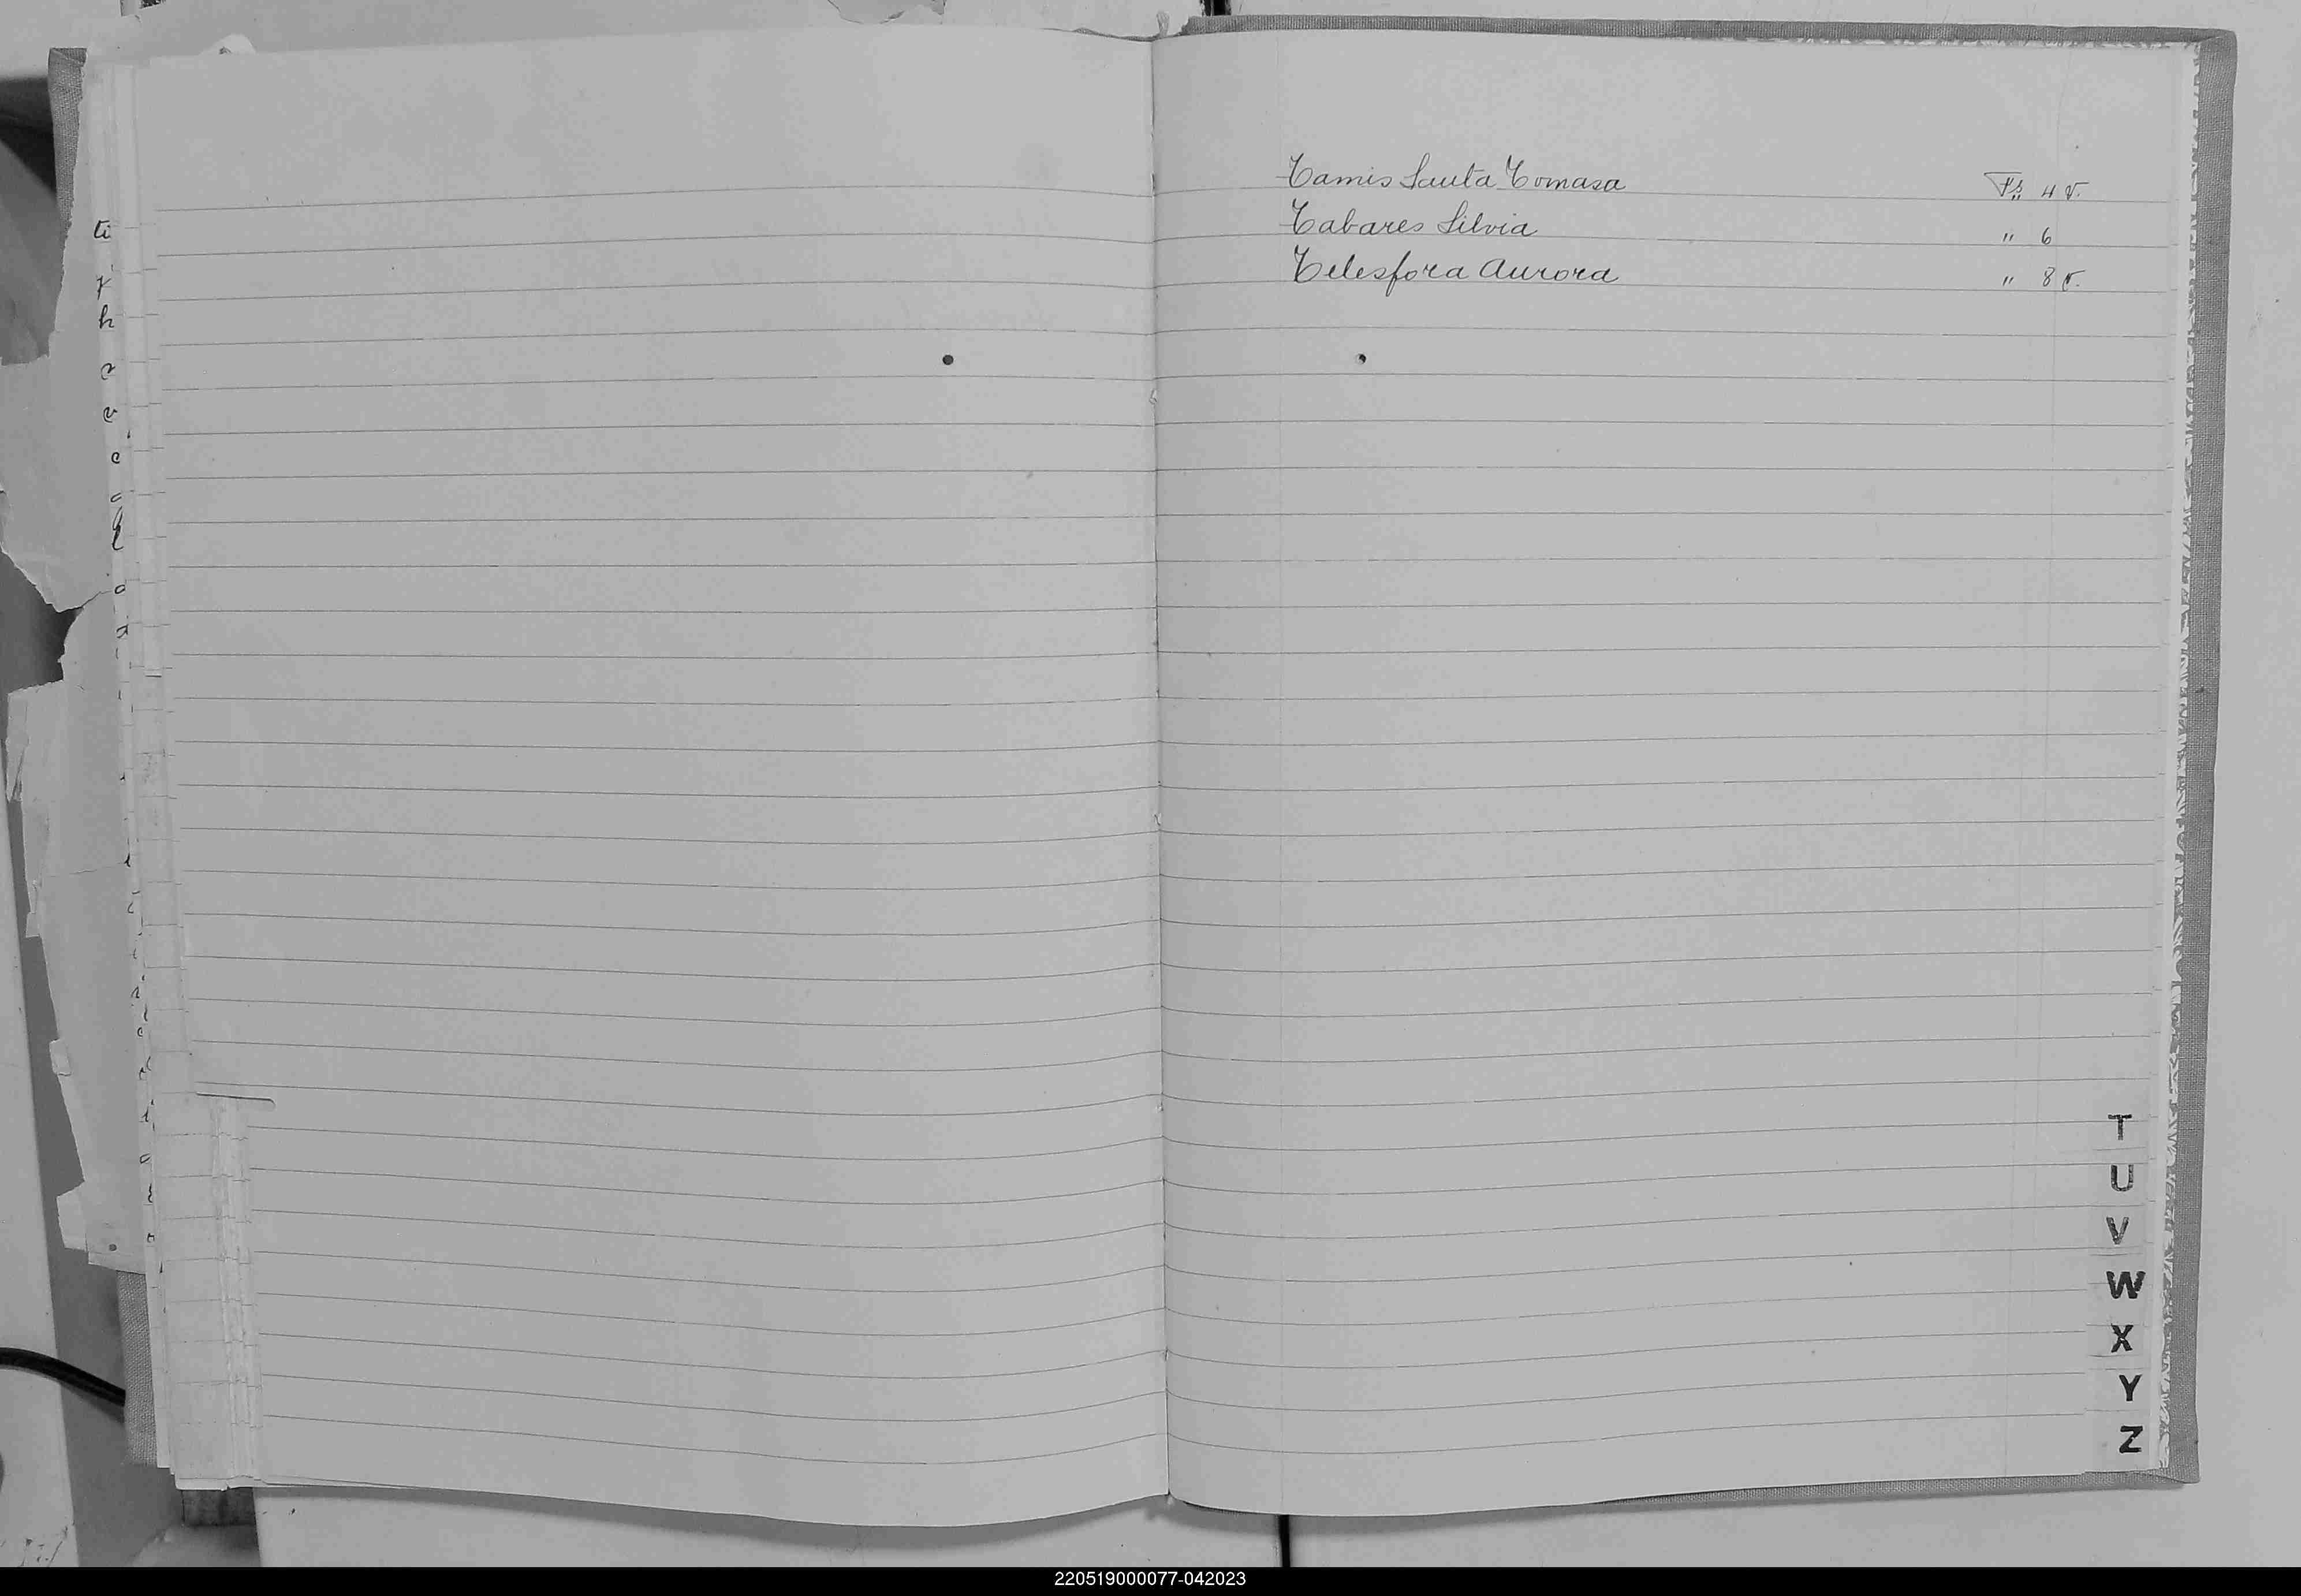 Tamis Santa Tomasa Fs. 4 v.
Tabares Silvia " 6
Telesfora Aurora " 8 v.
T
U
V
W
X
Y
Z
220519000077-042023